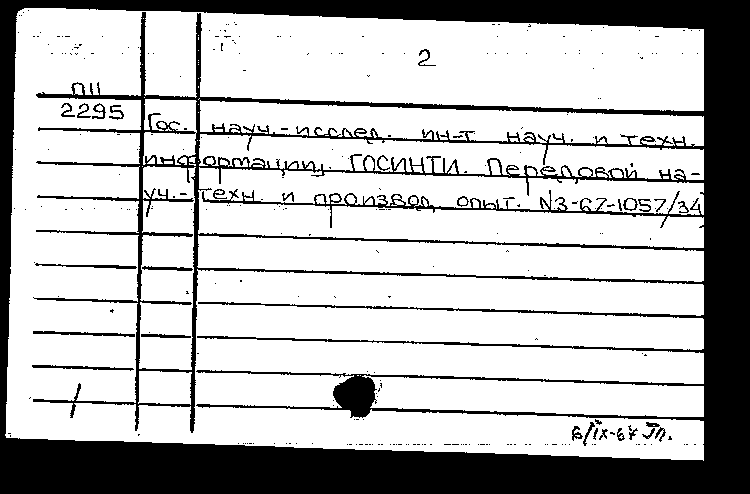 2
П11
2295 Гос. науч.-исслед. ин-т науч. и техн.
информации. ГОСИНТИ. Передовой на-
уч.-техн. и производ. опыт. N3-67-1057/34
6/IX-67